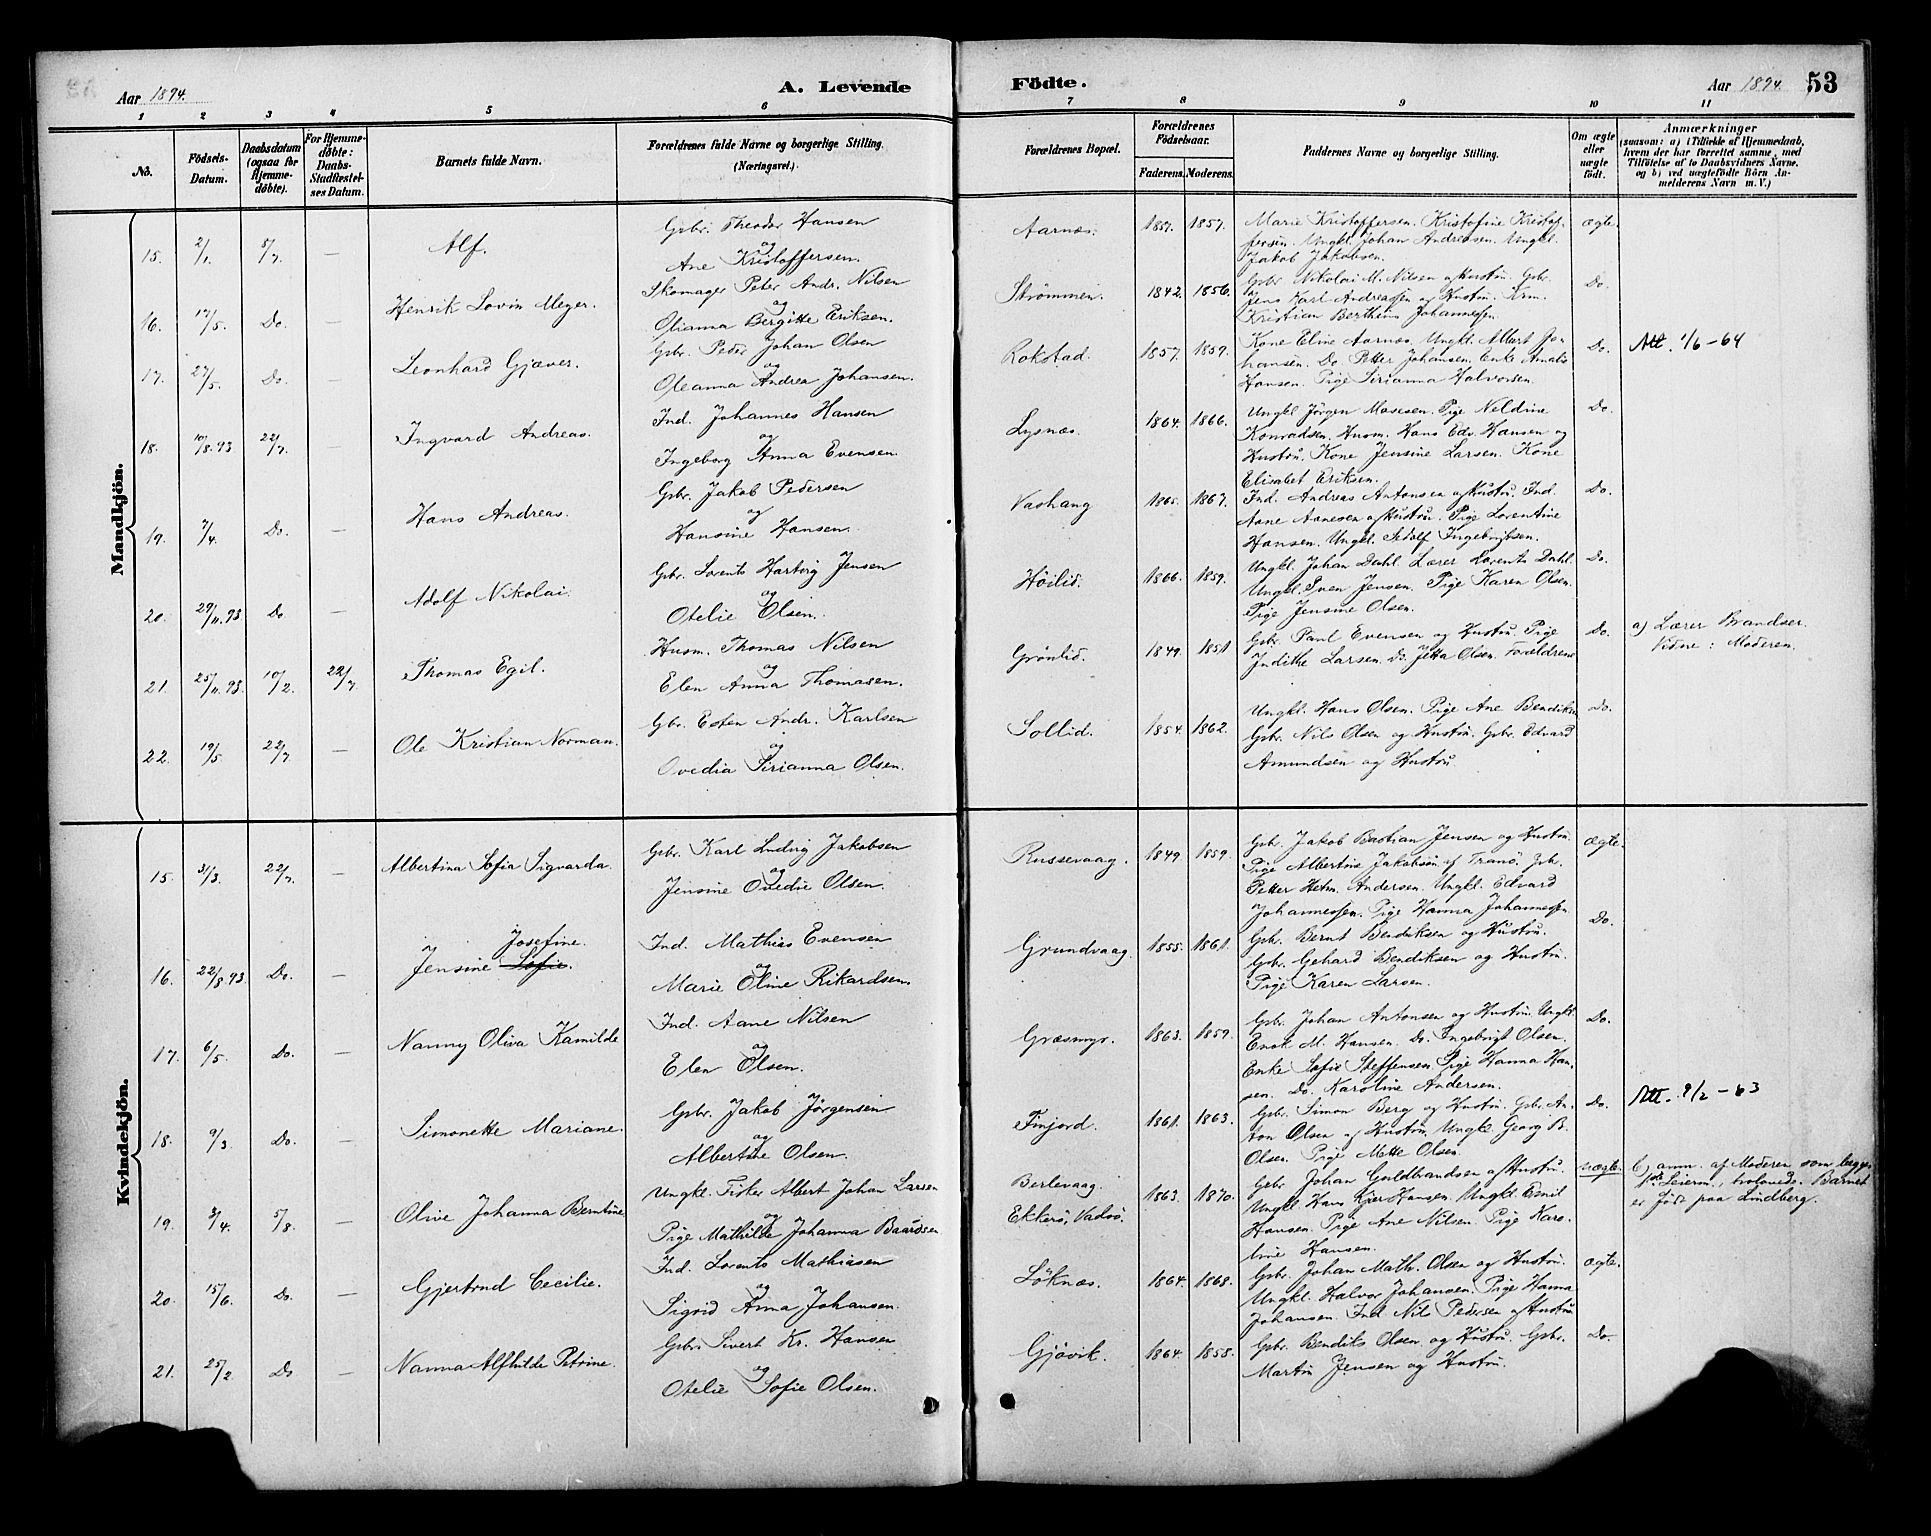 Aar 1894.
A. Levende
Födte.
Aar 1894
53
1 2 3 4 5 6 7 8 9 10 11
No.
Födsels-
Datum.
Daabsdatum
(ogsaa for
Hjemme-
döbte).
For Hjemme-
döbte:
Daabs-
Stadfæstel-
ses Datum.
Barnets fulde Navn.
Forældrenes fulde Navne og borgerlige Stilling.
(Næringsvei.)
Forældrenes Bopæl.
Forældrenes
Födselsaar.
Faderens. Moderens.
Faddernes Navne og borgerlige Stilling.
Om ægte
eller
uægte
födt.
Anmærkninger
(saasom: a) i Tilfælde af Hjemmedaab,
hvem der har forrettet samme, med
Tilföielse af to Daabsvidners Navne,
og b) ved uægtefödte Börn An-
melderens Navn m. V.)
Mandkjön.
15. 2/1. 5/7. — Alf.
Gbr. Theodor Hansen
og
Ane Kristoffersen.
Aarnæs. 1857. 1857.
Marie Kristoffersen. Kristofine Kristof-
fersen. Ungkl. Johan Andreasen. Ungkl.
Jakob Jakobsen.
ægte.
16. 17/5. Do. — Henrik Lovin Meyer.
Skomager Peter Andr. Nilsen
og
Olianna Bergitte Eriksen.
Strømmen. 1842. 1856.
Gbr. Nikolai M. Nilsen og Hustru. Gbr.
Jens Karl Andreassen og Hustru. Krm.
Kristian Bertheus Johannessen.
Do.
17. 27/5. Do. — Leonhard Gjæver.
Gbr. Peder Johan Olsen
og
Oleanna Andrea Johansen.
Rokstad. 1857. 1859.
Kone Eline Aarnæs. Ungkl. Albert Jo-
hansen. Do. Petter Johansen. Enke Amalie
Hansen. Pige Sirianna Halvorsen.
Do.
Att. 1/6-64
18. 10/8.93 22/7. — Ingvard Andreas.
Ind. Johannes Hansen
og
Ingeborg Anna Evensen.
Lysnæs. 1864. 1866.
Ungkl. Jörgen Mosesen. Pige Neldine
Konradsen. Husm. Hans Edv. Hansen og
Hustru. Kone Jensine Larsen. Kone
Elisabet Eriksen.
Do.
19. 7/4. Do. — Hans Andreas.
Gbr. Jakob Pedersen
og
Hansine Hansen.
Vashang 1865. 1867.
Ind. Andreas Antonsen og Hustru. Ind.
Aane Aanesen og Hustru. Pige Lorentine
Hansen. Ungkl. Adolf Ingebrigtsen.
Do.
20. 29/11.93 Do — Adolf Nikolai.
Gbr. Lorents Hartvig Jensen
og
Otelie Olsen.
Höilid. 1866. 1859.
Ungkl. Johan Dahl. Lærer Lorents Dahl.
Ungkl. Sven Jensen. Pige Karen Olsen.
Pige Jensine Olsen.
Do.
21. 25/11.93. 10/2. 22/7. Thomas Egil.
Husm. Thomas Nilsen
og
Elen Anna Thomasen.
Grönlid. 1849. 1851
Gbr. Paul Evensen og Hustru. Pige
Indithe Larsen. Do. Jetta Olsen. Forældrene
Do.
a) Lærer Brandser.
Vidne: Moderen.
22. 19/5. 22/7. — Ole Kristian Norman.
Gbr. Esten Andr. Karlsen
og
Ovedia Sirianna Olsen.
Sollid. 1854. 1862.
Ungkl. Hans Olsen. Pige Ane Bendiksen
Gbr. Nils Olsen og Hustru. Gbr. Edvard
Amundsen og Hustru
Do.
Kvindekjön.
15. 31/3. 22/7. — Albertina Sofia Sigvarda.
Gbr. Karl Ludvig Jakobsen
og
Jensine Ovedie Olsen.
Russevaag. 1849 1859.
Gbr. Jakob Bastian Jensen og Hustru.
Pige Albertine Jakobsen af Tranö. Gbr.
Petter Helm. Andersen. Ungkl. Edvard
Johannessen. Pige Hanna Johannessen
ægte.
16. 22/8.93. Do. — Josefine.
Jensine Sofie.
Ind. Mathias Evensen
og
Marie Oline Rikardsen.
Grundvaag 1855. 1861.
Gbr. Bernt Bendiksen og Hustru.
Gbr. Gehard Bendiksen og Hustru.
Pige Karen Larsen.
Do.
17. 6/5. Do. — Nanny Oliva Kamilde
Ind. Aane Nilsen
og
Elen Olsen.
Græsmyr. 1863. 1859.
Gbr. Johan Antonsen og Hustru. Ungkl.
Enok M. Hansen. Do. Ingebrigt Olsen.
Enke Sofie Steffensen. Pige Hanna Han-
sen. Do. Karoline Andersen.
Do.
18. 9/3 Do. — Simonette Mariane.
Gbr. Jakob Jörgensen
og
Albertine Olsen.
Finjord. 1861. 1863.
Gbr. Simon Berg og Hustru. Gbr. An-
ton Olsen og Hustru. Ungkl. Georg B.
Olsen. Pige Mette Olsen.
Do.
Att. 9/2-63
19. 3/4. 5/8. — Olive Johanna Berntine
Ungkl. Fisker Albert Johan Larsen
og
Pige Mathilde Johanna Baardsen
Berlevaag.
Ekkerö, Vadsö. 1863. 1870.
Gbr. Johan Guldbrandsen og Hustru.
Ungkl. Hans Kjer Hansen. Ungkl. Emil
Hansen. Pige Ane Nilsen. Pige Karo-
line Hansen.
uægte.
b) anm. af Moderen som begges
1ste Leierm., trolovede. Barnet
er född paa Lindberg.
20. 15/6. Do. — Gjertrud Cecilie.
Ind. Lorents Mathiasen
og
Sigrid Anna Johansen.
Löknæs. 1864. 1868.
Gbr. Johan Math. Olsen og Hustru.
Ungkl. Halvor Johansen. Pige Hanna
Johansen. Ind. Nils Pedersen og Hustru
ægte.
21. 25/2. Do — Nanna Alfhilde Petrine.
Gbr. Sivert Kr. Hansen
og
Otelie Sofie Olsen.
Gjövik. 1864. 1858.
Gbr. Bendiks Olsen og Hustru. Gbr.
Martin Jensen og Hustru.
Do